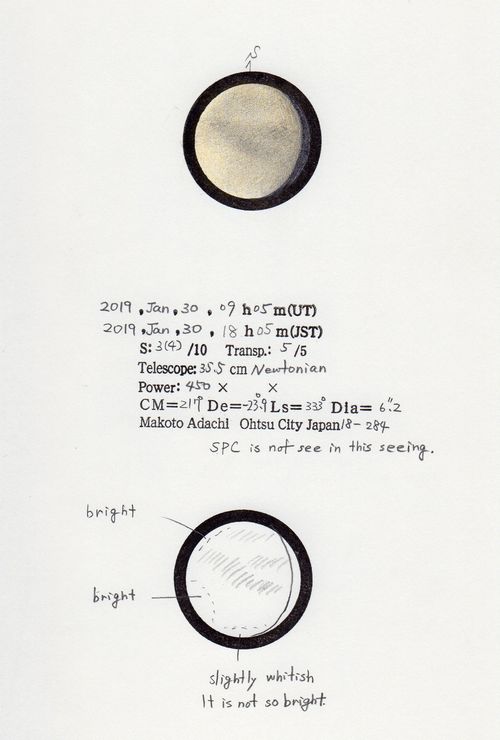 S
2019, Jan, 30, 09 h 05 m (UT)
2019, Jan, 30, 18 h 05 m (JST)
S: 3(4) /10 Transp.: 5 /5
Telescope: 35.5 cm Newtonian
Power: 450 × ×
CM=217° De=-23.9° Ls= 333° Dia= 6."2
Makoto Adachi Ohtsu City Japan 18-284
SPC is not see in this seeing.
bright
bright
slightly whitish
It is not so bright.